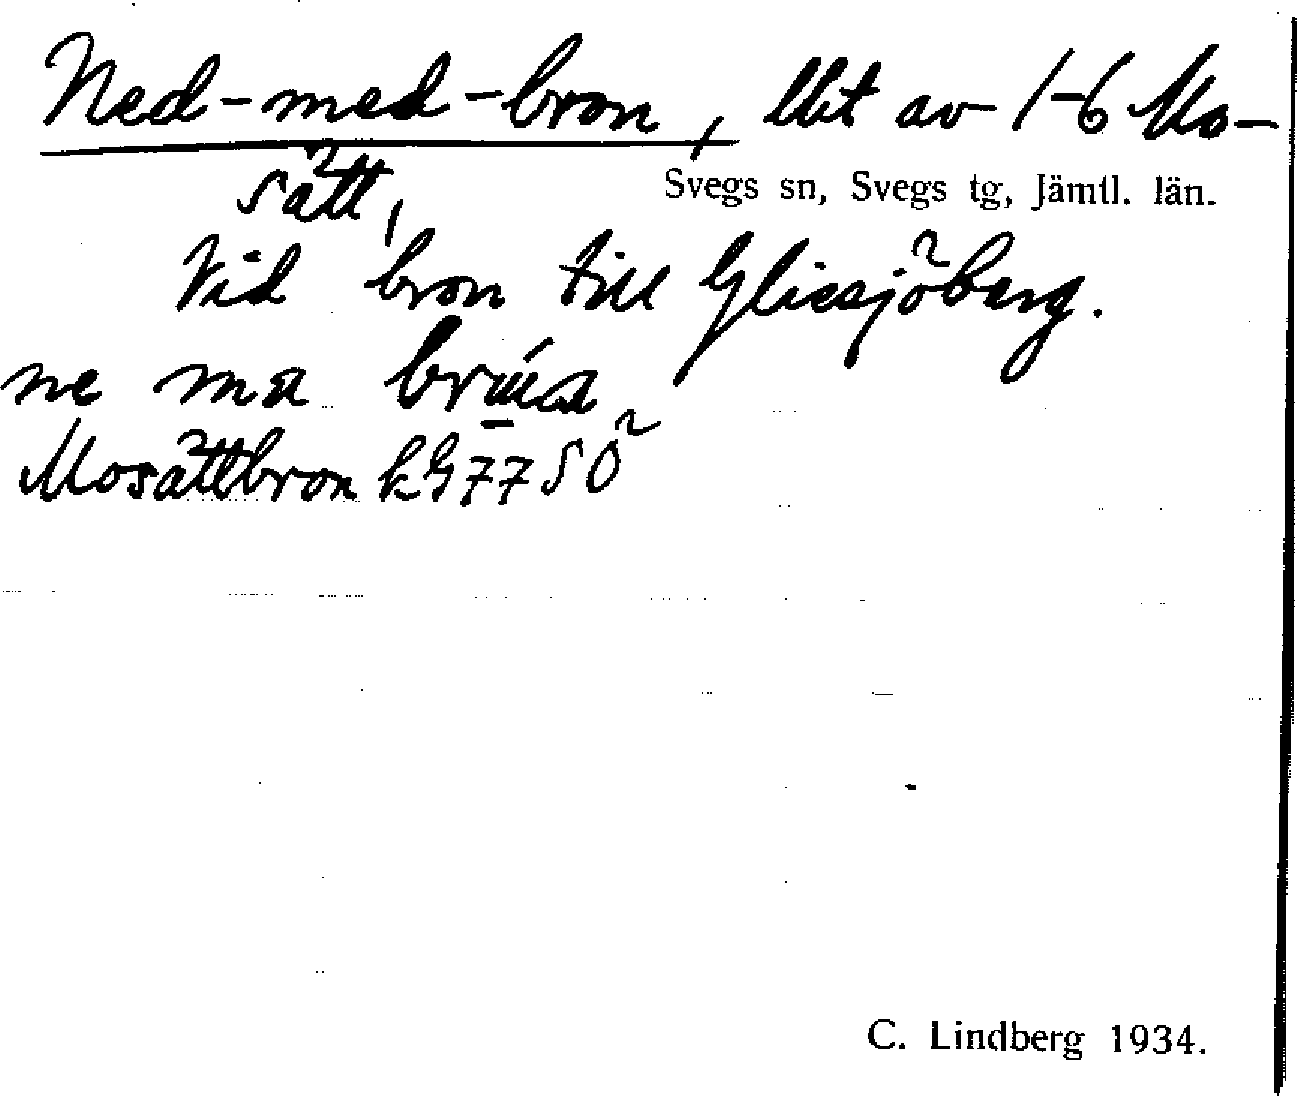 Ned-med-bron, lbt av 1-6 Mo-
sätt,
Svegs sn, Svegs tg, Jämtl. län.
Vid bron till Glissjöberg.
ne ma
Mosättbron kG77SÖ
C. Lindberg 1934.